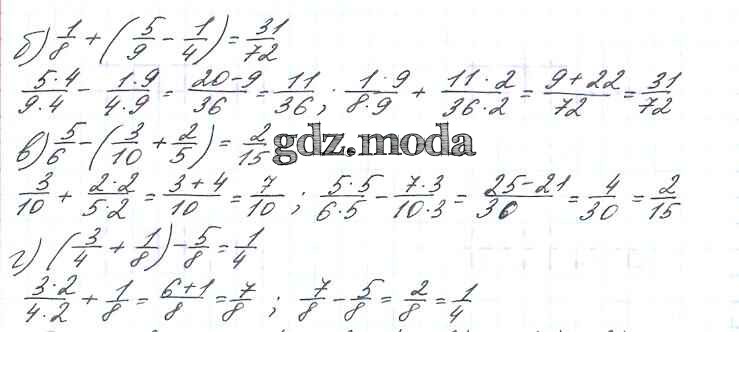 б) 1/8 + (5/9 - 1/4) = 31/72
5·4/9·4 - 1·9/4·9 = 20-9/36 = 11/36 ; 1·9/8·9 + 11·2/36·2 = 9+22/72 = 31/72
в) 5/6 - (3/10 + 2/5) = 2/15 gdz.moda
3/10 + 2·2/5·2 = 3+4/10 = 7/10 ; 5·5/6·5 - 7·3/10·3 = 25-21/30 = 4/30 = 2/15
г) (3/4 + 1/8) - 5/8 = 1/4
3·2/4·2 + 1/8 = 6+1/8 = 7/8 ; 7/8 - 5/8 = 2/8 = 1/4